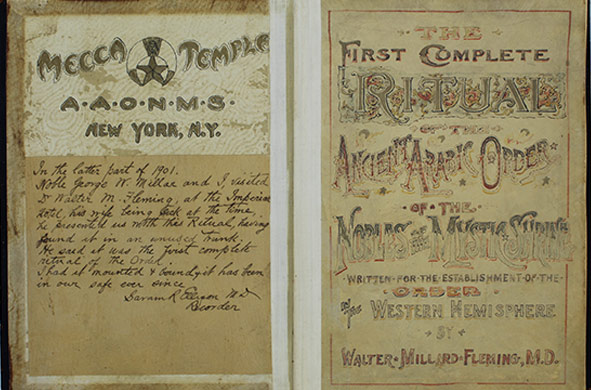 MECCA TEMPLE
A·A·O·N·M·S·
NEW YORK, N.Y.
In the latter part of 1901.
Noble George W. Millar and I, visited
Dr Walter M. Fleming, at the Imperial
Hotel, his wife being sick at the time,
he presented us with this Ritual, having
found it in an unused trunk.
He said it was the first complete
ritual of the Order.
I had it mounted & bound, it has been
in our safe ever since
M D
Recorder
THE
FIRST COMPLETE
RITUAL
OF THE
ANCIENT ARABIC ORDER
·OF·THE·
NOBLES OF THE MYSTIC SHRINE
WRITTEN·FOR·THE·ESTABLISHMENT·OF·THE·
ORDER
IN THE WESTERN HEMISPHERE
BY
WALTER·MILLARD·FLEMING, M.D.